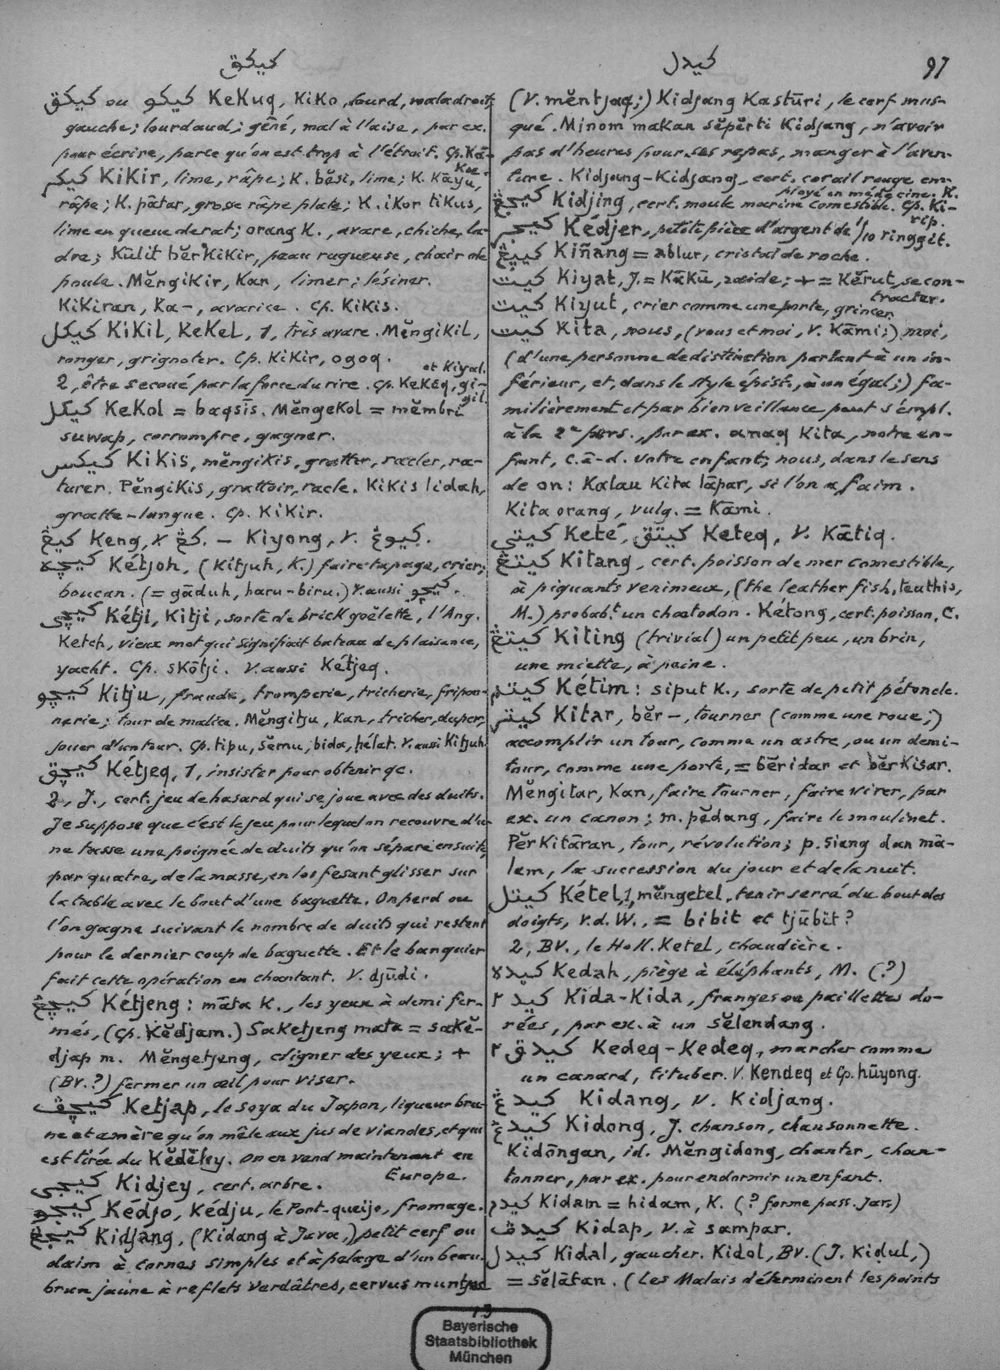 كيكق
كيدل
97
كيكق ou كيكو Kekuq, Kiko, lourd, maladroit,
gauche; lourdaud; gêné, mal à l'aise, par ex.
pour écrire, parce qu'on est trop à l'étroit. Cp. Kā-
Koe.
كيكر Kikir, lime, râpe; K. bĕsi, lime; K. Kāyu,
râpe; K. pātar, grosse râpe plate; K. ikor tikus,
lime en queue de rat; orang K., avare, chiche, la-
dre; Kūlit bĕrkikir, peau rugueuse, chair de
poule. Mĕngikir, Kan, limer; lésiner.
Kikiran, Ka-, avarice. Cp. Kikis.
كيكل Kikil, Kekel, 1, très avare. Mĕngikil,
ronger, grignoter. Cp. Kikir, ogoq.
et Kiyal.
2, être secoué par la force du rire. Cp. Kekeq, gi-
gil.
كيكل Kekol = baqsīs. Mĕngekol = mĕmbri
suwap, corrompre, gagner.
كيكس Kikis, mĕngikis, gratter, racler, ra-
turer. Pĕngikis, grattoir, racle. Kikis lidah,
gratte-langue. Cp. Kikir.
كيڠ Keng, v. كڠ. – Kiyong, v. كيوڠ.
كيچه Kétjoh, (Kitjuh, K.) faire tapage, crier;
boucan. (= gāduh, haru-biru.) V. aussi كيچو.
كيچي Kétji, Kitji, sorte de brick goëlette, l'Ang.
Ketch, vieux mot qui signifiait bateau de plaisance,
yacht. Cp. skōtji. V. aussi Kétjeq.
كيچو Kitju, fraude, tromperie, tricherie, fripon-
nerie; tour de malice. Mĕngitju, Kan, tricher, duper,
jouer d'un tour. Cp. tipu, sĕmu, bida, ḥélat. V. aussi Kitjuh
كيچق Kétjeq, 1, insister pour obtenir qc.
2, J., cert. jeu de hasard qui se joue avec des duits.
Je suppose que c'est le jeu pour lequel on recouvre d'u-
ne tasse une poignée de duits qu'on sépare ensuite,
par quatre, de la masse, en les fesant glisser sur
la table avec le bout d'une baguette. On perd ou
l'on gagne suivant le nombre de duits qui restent
pour le dernier coup de baguette. Et le banquier
fait cette opération en chantant. V. djūdi.
كيچڠ Kétjeng: māta K., les yeux à demi fer-
més, (Cp. Kĕdjam.) Saketjeng mata = sakĕ-
djap m. Mĕngetjeng, cligner des yeux; +
(BV.?) fermer un œil pour viser.
كيچڤ Ketjap, le soya du Japon, liqueur bru-
ne et amère qu'on mêle aux jus de viandes, et qui
est tirée du Kĕdĕley. On en vend maintenant en
Europe.
كيجي Kidjey, cert. arbre.
كيجو Kédjo, Kédju, le Port. queijo, fromage.
كيجڠ Kidjang, (Kidang à Java,) petit cerf ou
daim à cornes simples et à pelage d'un beau
brun jaune à reflets verdâtres, cervus muntjac
(V. mĕntjaq;) Kidjang Kastūri, le cerf mus-
qué. Minom makan sĕpĕrti Kidjang, n'avoir
pas d'heures pour ses repas, manger à l'aven-
ture. Kidjang-Kidjang, cert. corail rouge em-
ployé en médecine. K.
كيجڠ Kidjing, cert. moule marine comestible. Cp. Ki-
rip.
كيجر Kédjer, petite pièce d'argent de 1/10 ringgit.
كيڽڠ Kiñang = ablur, cristal de roche.
كيت Kiyat, J. = Kākū, roide; + = Kĕrut, se con-
tracter.
كيت Kiyut, crier comme une porte, grincer
كيت Kita, nous, (vous et moi, V. Kāmi;) moi,
(d'une personne de distinction parlant à un in-
férieur, et, dans le style épist., à un égal;) fa-
milièrement et par bienveillance peut s'empl.
à la 2e pers., par ex. anaq Kita, notre en-
fant, c.-à-d. votre enfant; nous, dans le sens
de on: Kalau Kita lāpar, si l'on a faim.
Kita orang, vulg. = Kāmi.
كيتي Keté, كيتق Keteq, V. Kātiq.
كيتڠ Kitang, cert. poisson de mer comestible,
à piquants venimeux, (the leather fish, teuthis,
M.) probabt. un chœtodon. Ketong, cert. poisson, C.
كيتڠ Kiting (trivial) un petit peu, un brin,
une miette, à peine.
كيتم Kétim: siput K., sorte de petit pétoncle.
كيتر Kitar, bĕr-, tourner (comme une roue;)
accomplir un tour, comme un astre, ou un demi-
tour, comme une porte, = bĕridar et bĕrkisar.
Mĕngitar, Kan, faire tourner, faire virer, par
ex. un canon; m. pĕdang, faire le moulinet.
Pĕrkitāran, tour, révolution; p. siang dan mā-
lem, la succession du jour et de la nuit.
كيتل Kétel, 1, mĕngetel, tenir serré du bout des
doigts, v.d.W., = bibit et tjūbit?
2, BV., le Holl. Ketel, chaudière.
كيده Kedah, piège à éléphants, M. (?)
كيد ٢ Kida-Kida, franges ou paillettes do-
rées, par ex. à un sĕlendang.
كيدق ٢ Kedeq-Kedeq, marcher comme
un canard, tituber. V. Kendeq et Cp. hūyong.
كيدڠ Kidang, v. Kidjang.
كيدڠ Kidong, J. chanson, chansonnette.
Kidōngan, id. Mĕngidong, chanter, chan-
tonner, par ex. pour endormir un enfant.
كيدم Kidam = hidam, K. (? forme pass. Jav.)
كيدڤ Kidap, v. à sampar.
كيدل Kidal, gaucher. Kidol, BV. (J. Kidul,)
= sĕlātan. (Les Malais déterminent les points
13
Bayerische
Staatsbibliothek
München